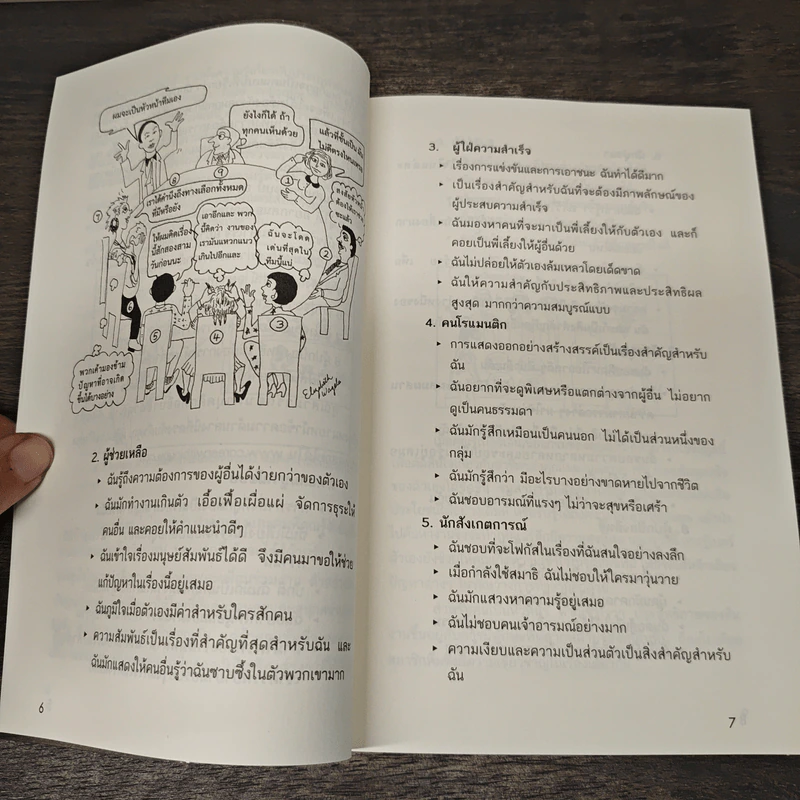 ผมจะเป็นหัวหน้าทีมเอง
ยังไงก็ได้ ถ้า
ทุกคนเห็นด้วย
เราได้คำนึงถึงทางเลือกทั้งหมด
ที่มีหรือยัง
ให้ผมคิดเรื่อง
นี้สักสองสาม
วันก่อนนะ
เอาอีกและ พวก
นี้คิดว่า งานของ
เรามันแหวกแนว
เกินไปอีกและ
ฉันจะโดด
เด่นที่สุดใน
ทีมนี้แน่
พวกเค้ามองข้าม
ปัญหาที่อาจเกิด
ขึ้นได้บางอย่าง
1
2
3
4
5
6
7
8
9
2. ผู้ช่วยเหลือ
‣ ฉันรู้ถึงความต้องการของผู้อื่นได้ง่ายกว่าของตัวเอง
‣ ฉันมักทำงานเกินตัว เอื้อเฟื้อเผื่อแผ่ จัดการธุระให้
คนอื่น และคอยให้คำแนะนำดีๆ
‣ ฉันเข้าใจเรื่องมนุษย์สัมพันธ์ได้ดี จึงมีคนมาขอให้ช่วย
แก้ปัญหาในเรื่องนี้อยู่เสมอ
‣ ฉันภูมิใจเมื่อตัวเองมีค่าสำหรับใครสักคน
‣ ความสัมพันธ์เป็นเรื่องที่สำคัญที่สุดสำหรับฉัน และ
ฉันมักแสดงให้คนอื่นรู้ว่าฉันซาบซึ้งในตัวพวกเขามาก
6
3. ผู้ใฝ่ความสำเร็จ
‣ เรื่องการแข่งขันและการเอาชนะ ฉันทำได้ดีมาก
‣ เป็นเรื่องสำคัญสำหรับฉันที่จะต้องมีภาพลักษณ์ของ
ผู้ประสบความสำเร็จ
‣ ฉันมองหาคนที่จะมาเป็นพี่เลี้ยงให้กับตัวเอง และก็
คอยเป็นพี่เลี้ยงให้ผู้อื่นด้วย
‣ ฉันไม่ปล่อยให้ตัวเองล้มเหลวโดยเด็ดขาด
‣ ฉันให้ความสำคัญกับประสิทธิภาพและประสิทธิผล
สูงสุด มากกว่าความสมบูรณ์แบบ
4. คนโรแมนติก
‣ การแสดงออกอย่างสร้างสรรค์เป็นเรื่องสำคัญสำหรับ
ฉัน
‣ ฉันอยากที่จะดูพิเศษหรือแตกต่างจากผู้อื่น ไม่อยาก
ดูเป็นคนธรรมดา
‣ ฉันมักรู้สึกเหมือนเป็นคนนอก ไม่ได้เป็นส่วนหนึ่งของ
กลุ่ม
‣ ฉันมักรู้สึกว่า มีอะไรบางอย่างขาดหายไปจากชีวิต
‣ ฉันชอบอารมณ์ที่แรงๆ ไม่ว่าจะสุขหรือเศร้า
5. นักสังเกตการณ์
‣ ฉันชอบที่จะโฟกัสในเรื่องที่ฉันสนใจอย่างลงลึก
‣ เมื่อกำลังใช้สมาธิ ฉันไม่ชอบให้ใครมาวุ่นวาย
‣ ฉันมักแสวงหาความรู้อยู่เสมอ
‣ ฉันไม่ชอบคนเจ้าอารมณ์อย่างมาก
‣ ความเงียบและความเป็นส่วนตัวเป็นสิ่งสำคัญสำหรับ
ฉัน
7